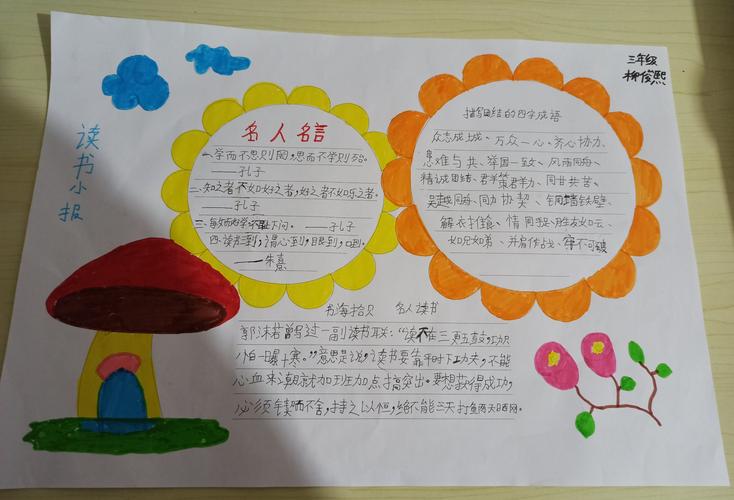 三年级
柳俊熙
读书小报
名人名言
一、学而不思则罔,思而不学则殆。
——孔子
二、知之者不如好之者,好之者不如乐之者。
——孔子
三、敏而好学不耻下问。——孔子
四、读书三到,谓心到,眼到,口到。
——朱熹
描写团结的四字成语
众志成城、万众一心、齐心协力、
患难与共、举国一致、风雨同舟、
精诚团结、群策群力、同甘共苦、
吴越同舟、同力协契、铜墙铁壁、
解衣推食、情同手足、胜友如云、
如兄如弟、并肩作战、牢不可破
书海拾贝 名人读书
郭沫若曾写过一副读书联:“读不在三更五鼓,功
只怕一曝十寒。”意思是说,读书要靠平时下工夫,不能
心血来潮就加班加点搞突出。要想获得成功,
必须锲而不舍,持之以恒,绝不能三天打鱼两天晒网。